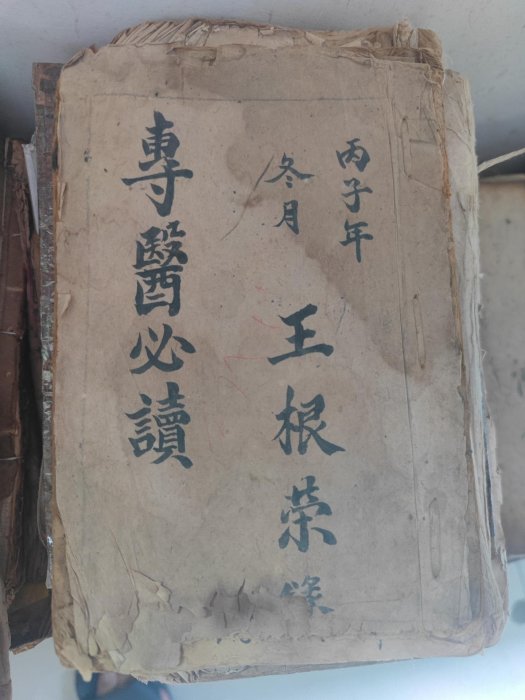 丙子年
冬月
王根荣
專醫必讀